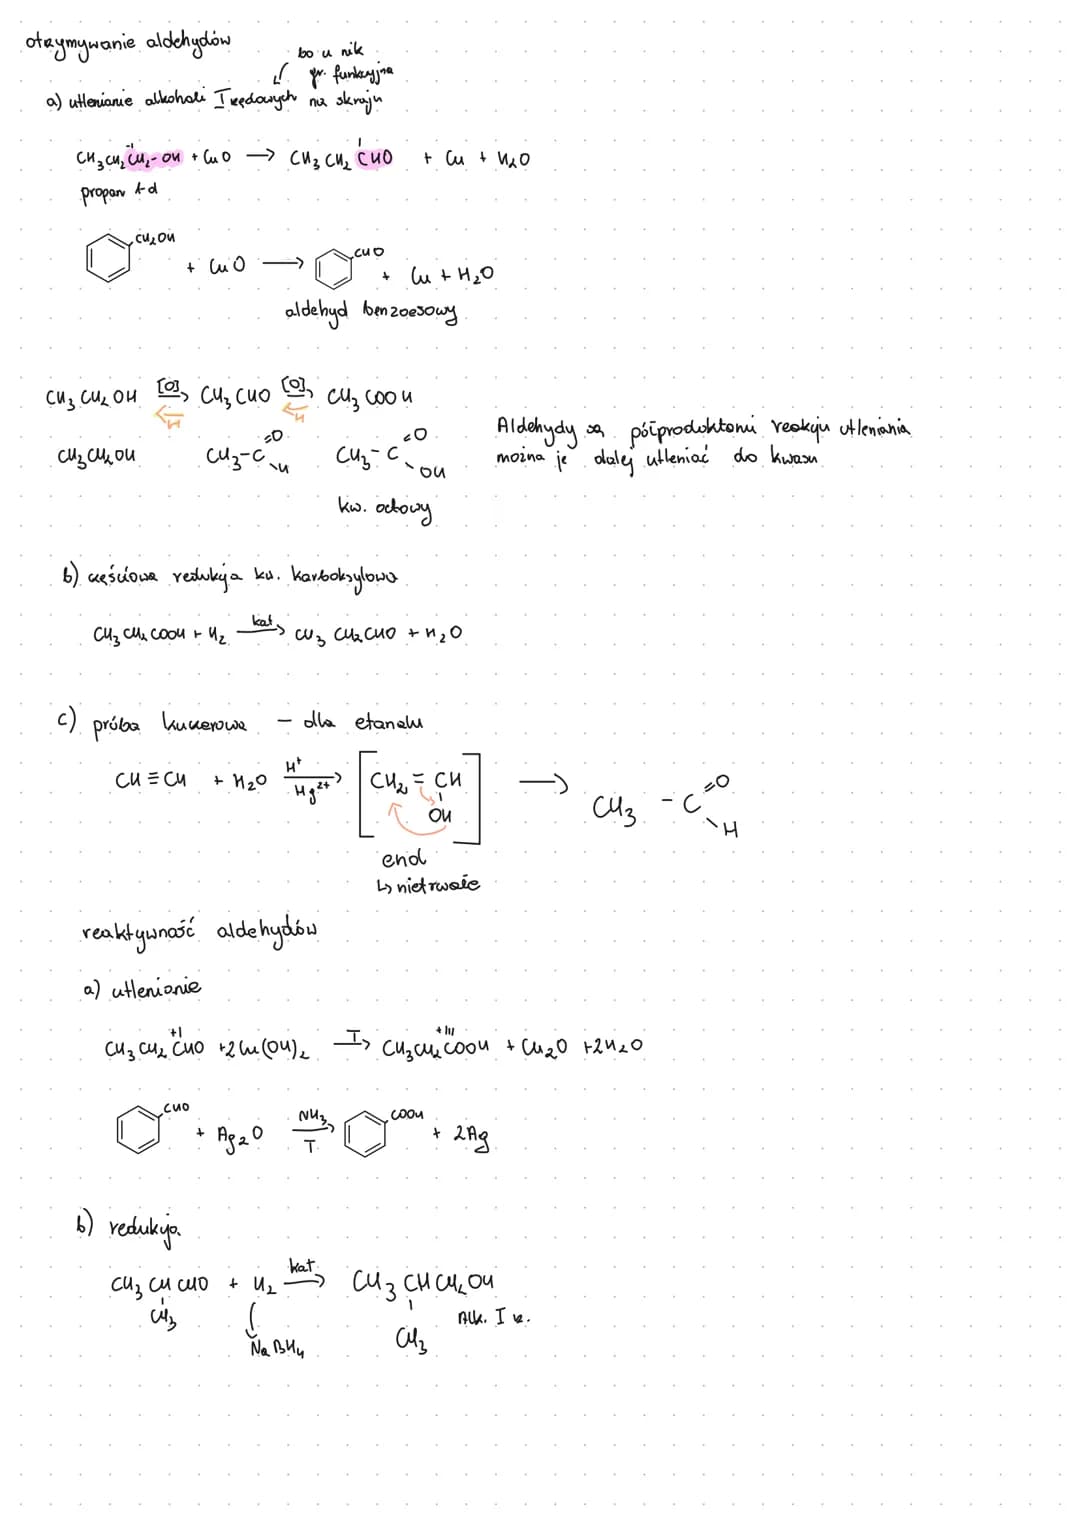 otrzymywanie aldehydów
bo u nik
gr. funkcyjna
a) utlenianie alkoholi I rzędowych na skraju
CH₃CH₂CH₂-OH + CuO → CH₃CH₂CHO + Cu + H₂O
-I I
propan 1-ol
CH₂OH
+ CuO → CHO + Cu + H₂O
aldehyd benzoesowy
CH₃CH₂OH [O]→ CH₃CHO [O]→ CH₃COOH
←H ←H
Aldehydy są półproduktami reakcji utleniania
można je dalej utleniać do kwasu
CH₃CH₂OH CH₃-C=O\H CH₃-C=O\OH
kw. octowy
b) częściowa redukcja kw. karboksylowo
CH₃CH₂COOH + H₂ kat.→ CH₃CH₂CHO + H₂O
c) próba kuczerowa - dla etanalu
CH≡CH + H₂O H⁺/Hg²⁺→ [CH₂=CH-OH] → CH₃-C=O\H
enol
↳ nietrwałe
reaktywność aldehydów
a) utlenianie
+I +III
CH₃CH₂CHO + 2Cu(OH)₂ T→ CH₃CH₂COOH + Cu₂O + 2H₂O
CHO + Ag₂O NH₃/T→ COOH + 2Ag
b) redukcja
CH₃CHCHO + H₂ kat.→ CH₃CHCH₂OH
CH₃ NaBH₄ CH₃ Alk. I rz.